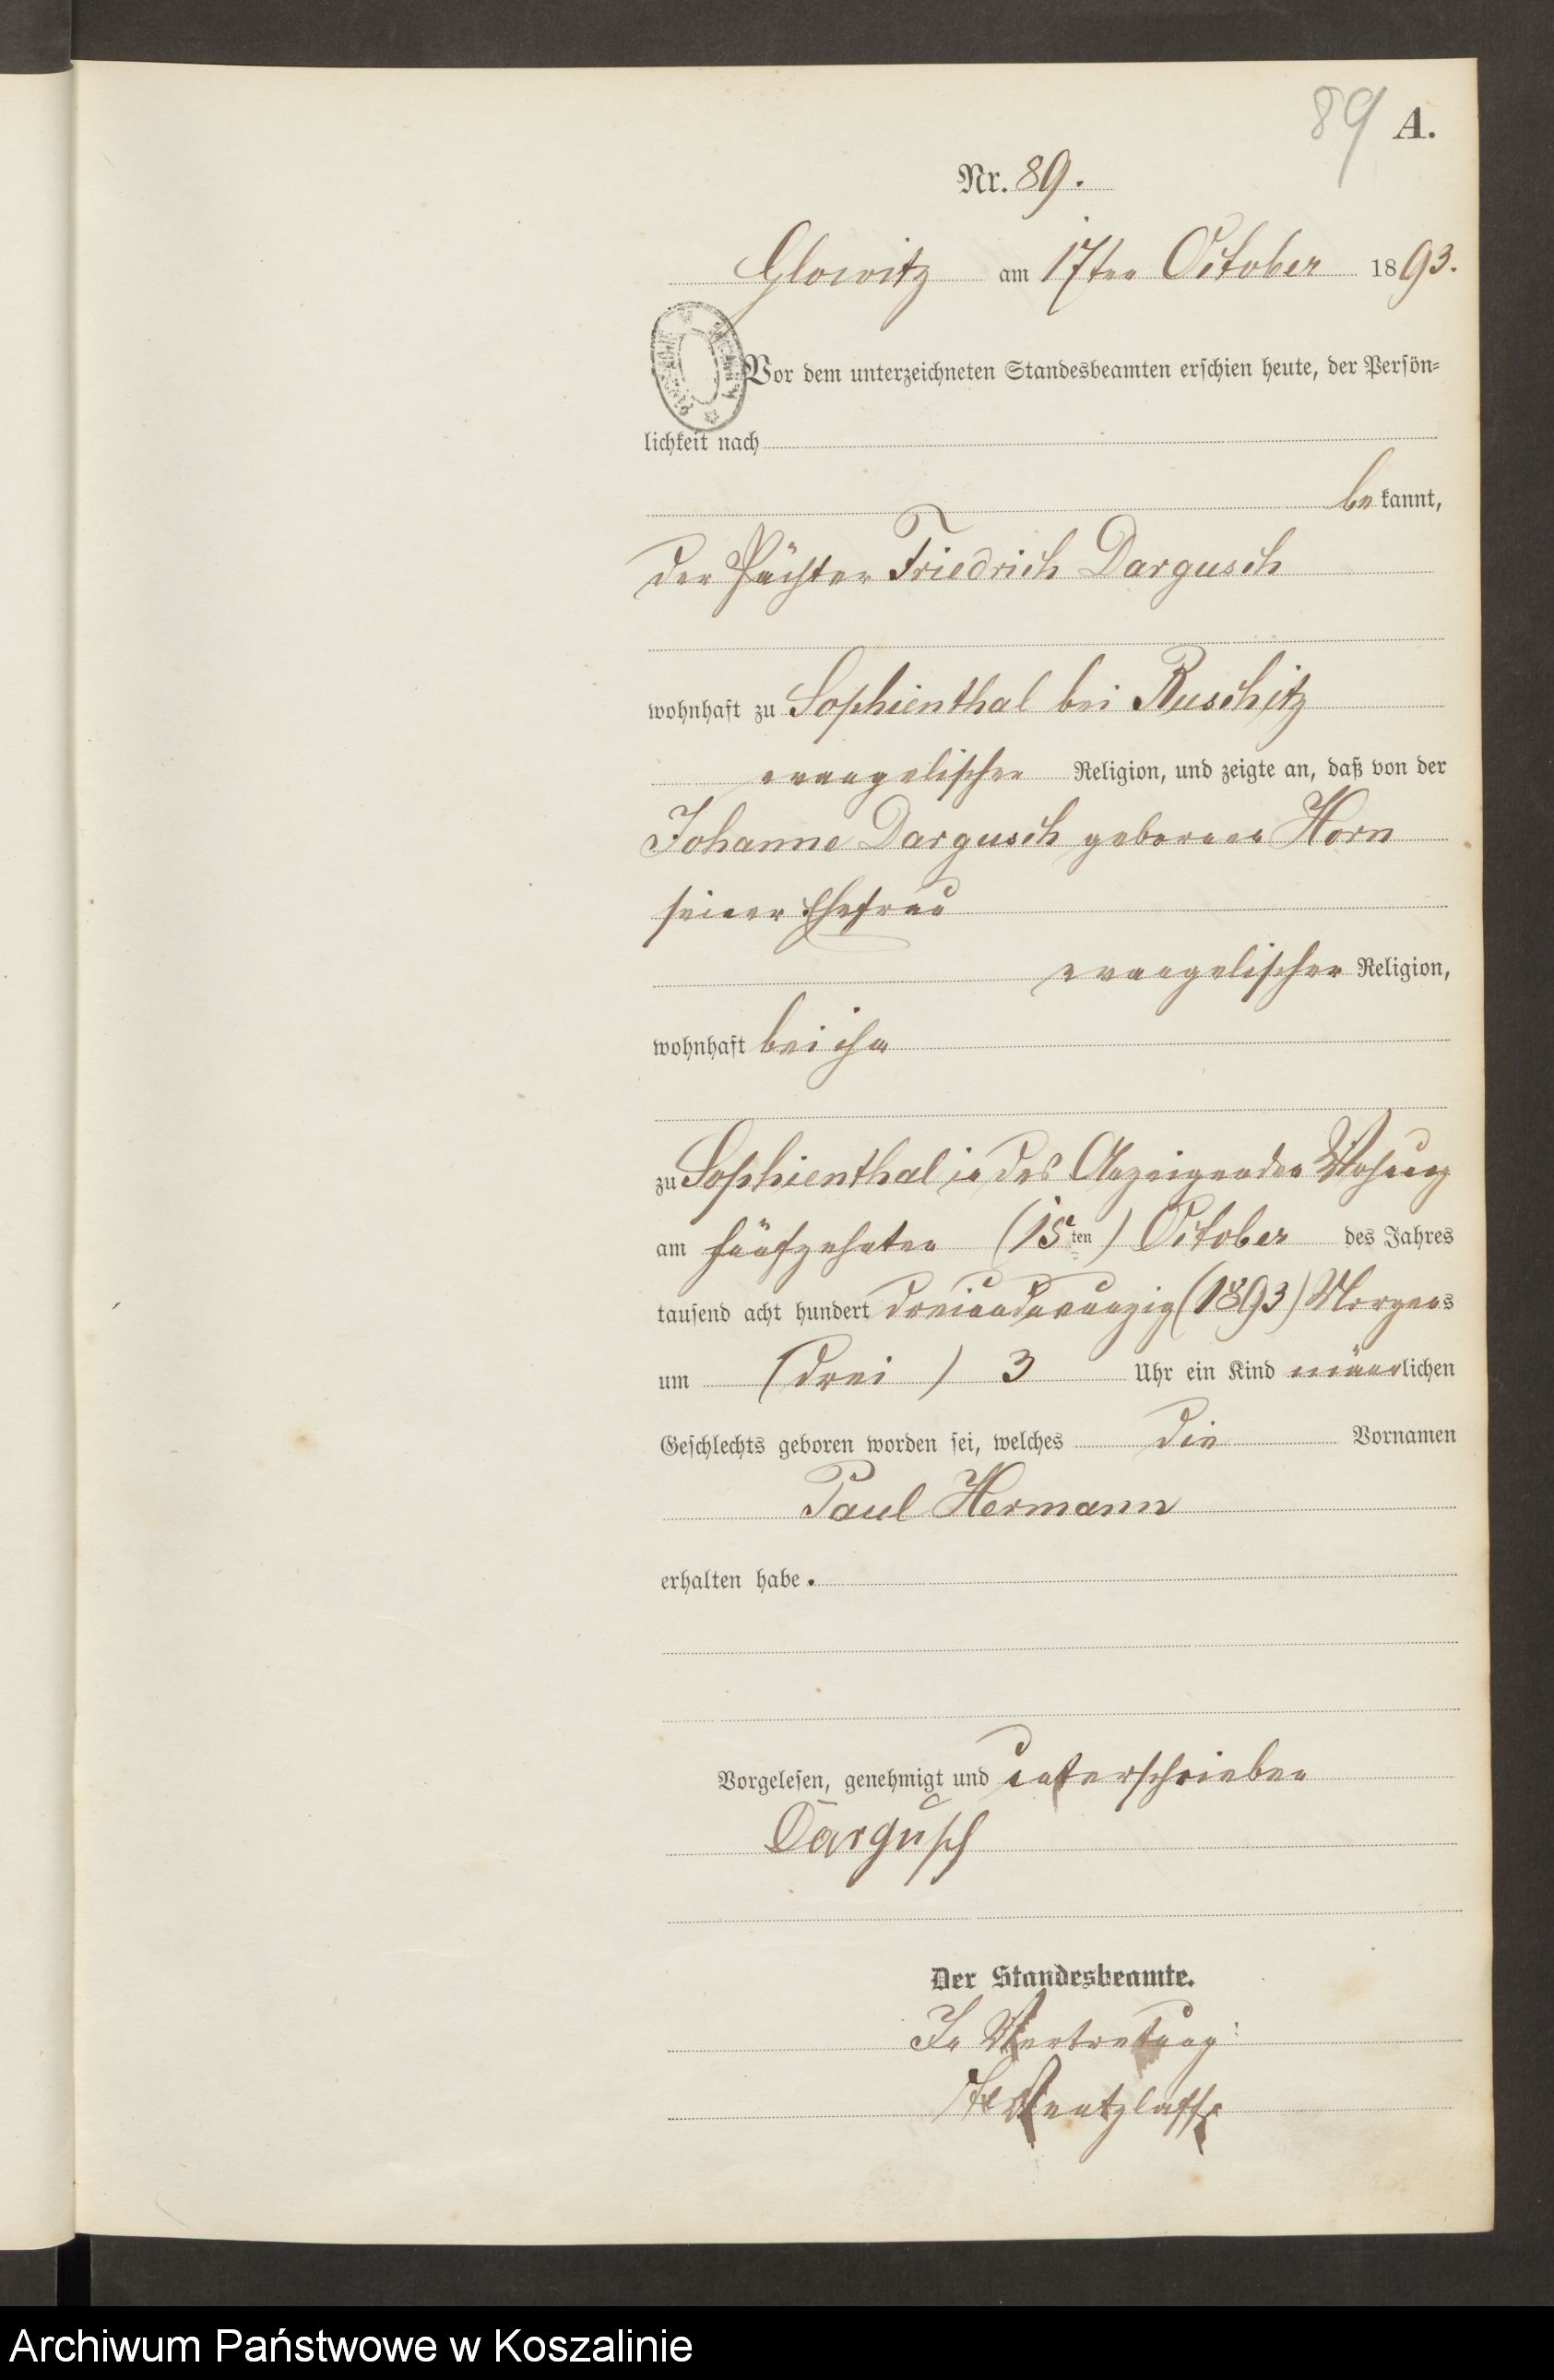 89 A.
Nr. 89.
Glowitz am 17ten October 1893.
Vor dem unterzeichneten Standesbeamten erschien heute, der Persön=
lichkeit nach
bekannt,
der Pächter Friedrich Dargusch
wohnhaft zu Sophienthal bei Ruschitz
evangelischer Religion, und zeigte an, daß von der
Johanne Dargusch geborenen Horn
seiner Ehefrau
evangelischer Religion,
wohnhaft bei ihm
zu Sophienthal in des Anzeigenden Wohung
am fünfzehnten (15ten) October des Jahres
tausend acht hundert dreiundneunzig (1893) Morgens
um (drei) 3 Uhr ein Kind männlichen
Geschlechts geboren worden sei, welches die Vornamen
Paul Hermann
erhalten habe.
Vorgelesen, genehmigt und unterschrieben
Dargusch
Der Standesbeamte.
In Vertretung:
Wentzlaff
Archiwum Państwowe w Koszalinie